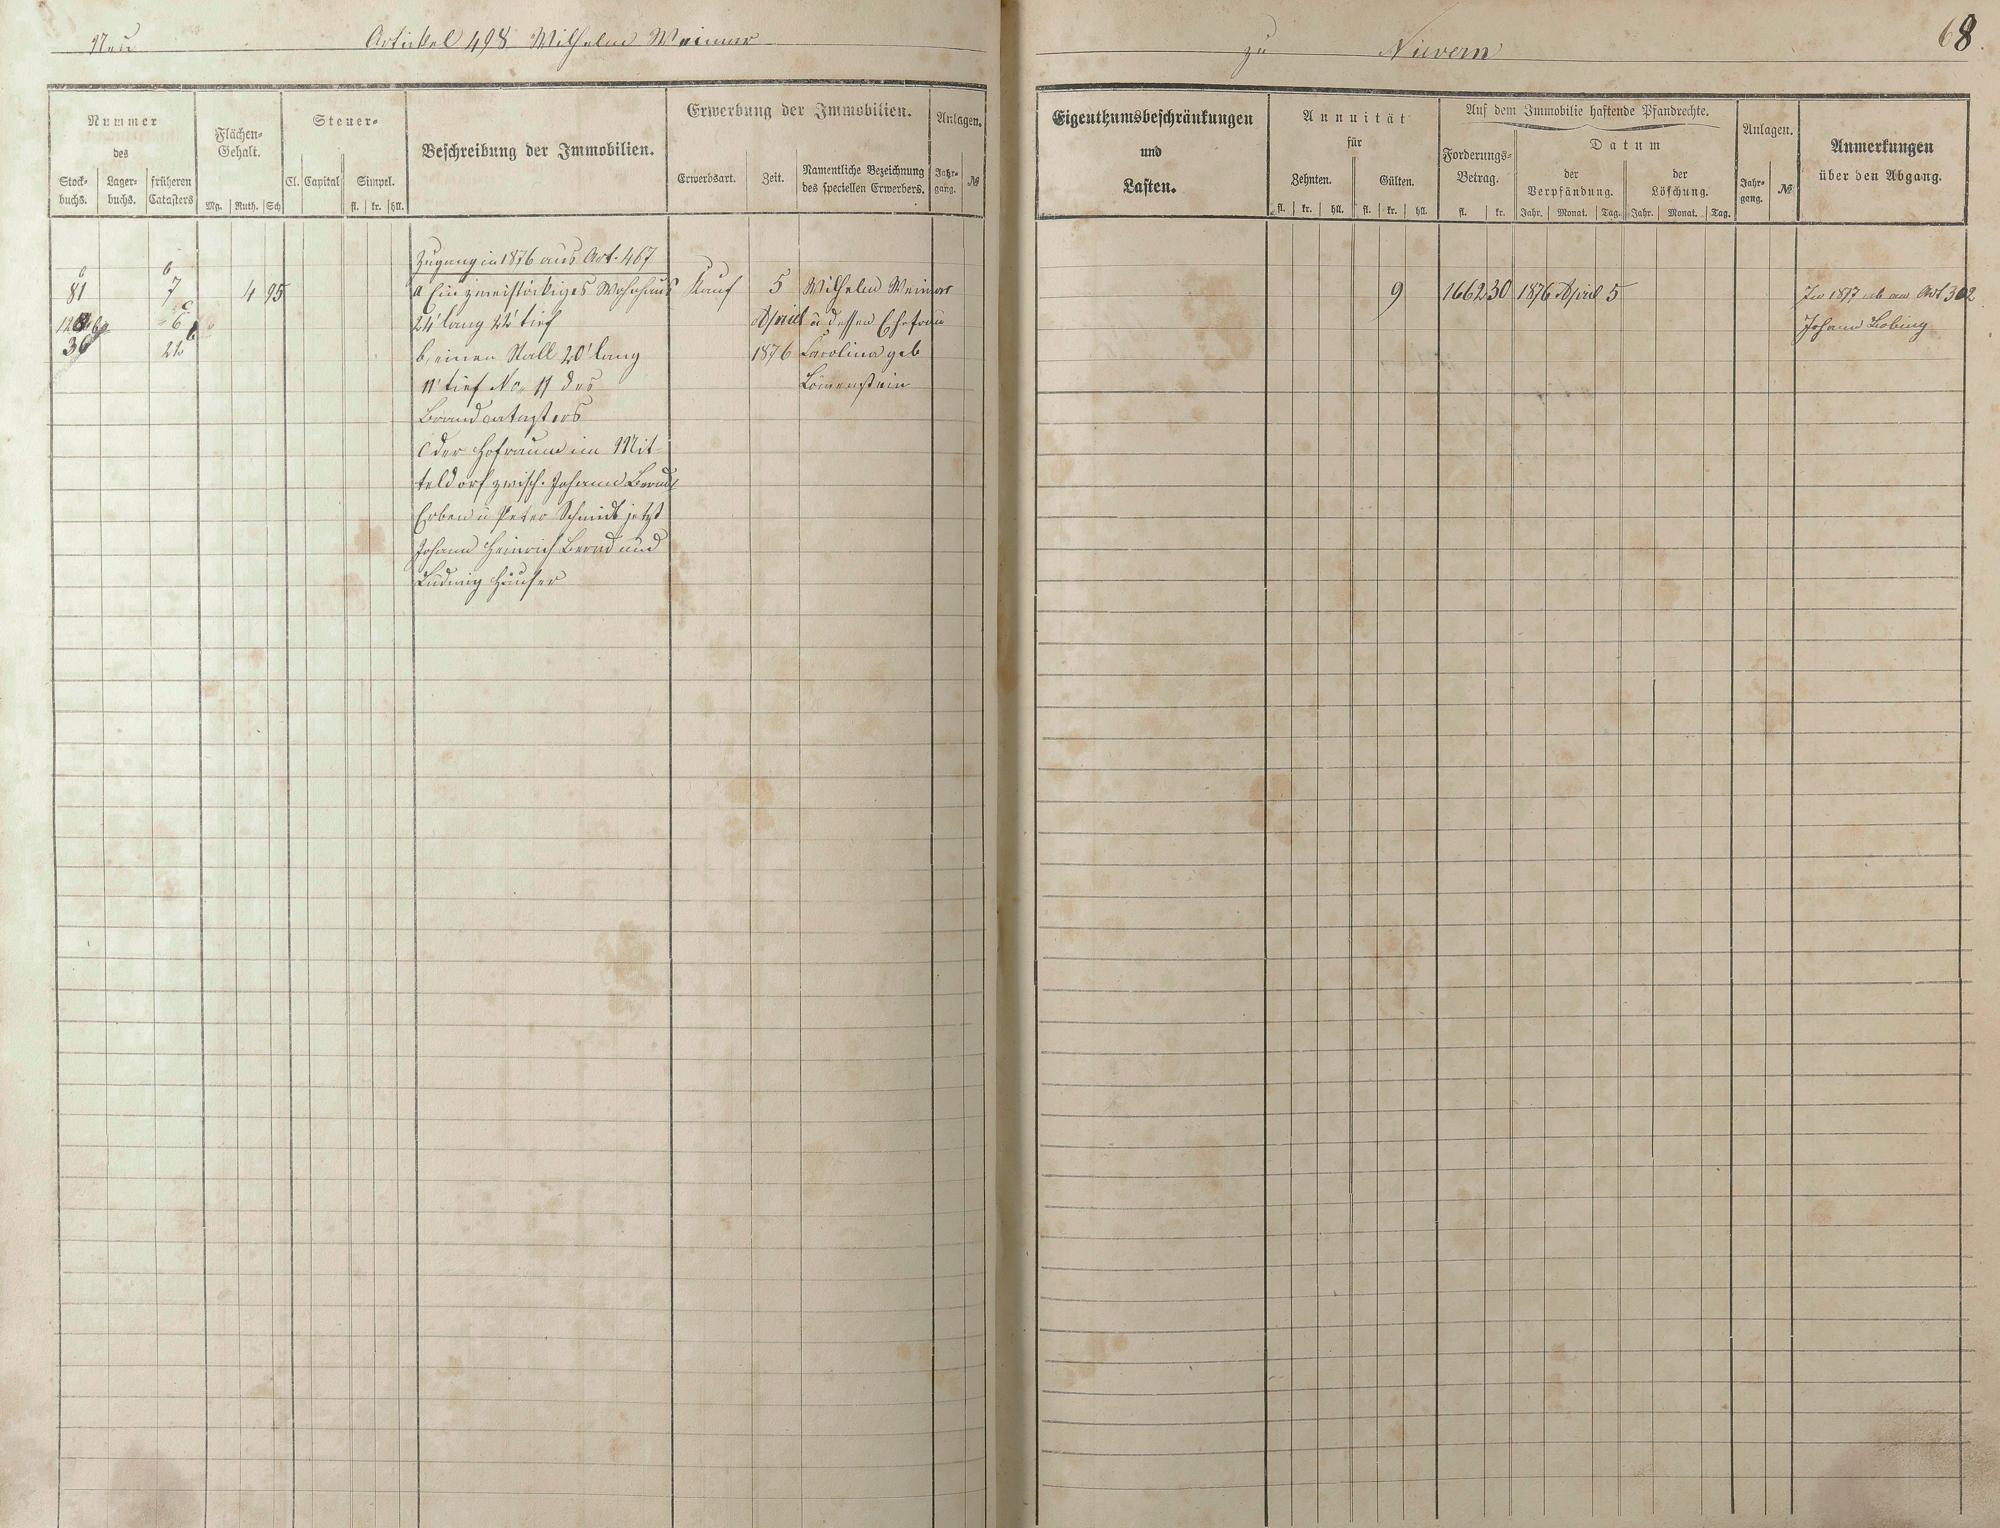 Neu Artickel 498 Wilhelm Weimar
Nummer
des
Stock-
buchs.
Lager-
buchs.
früheren
Catasters
Flächen-
Gehalt.
Mg. Ruth. Sch
Steuer-
Cl. Capital Simpel.
fl. kr. hll.
Beschreibung der Immobilien.
Erwerbung der Immobilien.
Erwerbsart. Zeit.
Namentliche Bezeichnung
des speciellen Erwerbers.
Anlagen.
Jahr-
gang.
№
Zugang in 1876 aus Art. 467
81 7 4 95 a Ein zweistöckiges Wohnhaus Kauf 5 Wilhelm Weimar
6 24' lang 22' tief April u dessen Ehefrau
36 b, einen Stall 20' lang 1876 Carolina geb
11' tief No. 11 des Löwenstein
Brandcatasters
c der Hofraum im Mit-
teldorf zwisch. Johann Bernd
Erben u Peter Schmidt jetzt
Johann Heinrich Bernd und
Ludwig Häuser
zu Nievern 68
Eigenthumsbeschränkungen
und
Lasten.
Annuität
für
Zehnten. Gülten.
fl. kr. hll. fl. kr. hll.
Auf dem Immobilie haftende Pfandrechte.
Forderungs-
Betrag.
fl. kr.
Datum
der
Verpfändung.
Jahr. Monat. Tag.
der
Löschung.
Jahr. Monat. Tag.
Anlagen.
Jahr-
gang.
№
Anmerkungen
über den Abgang.
9 1662 30 1876 April 5 In 1877 ab an Art 302
Johann